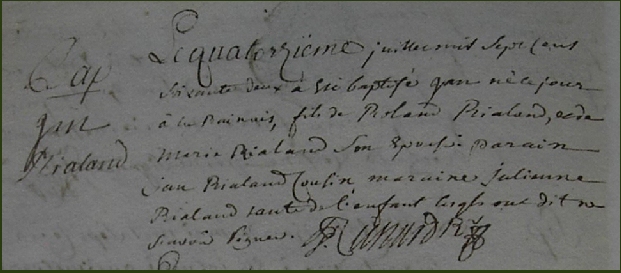 Bap
jan
Rialand
Le quatorzieme juillet mil sept cens
soixante deux a été baptisé jan né le jour
à la Rainais, fils de Roland Rialand, et de
Marie Rialand son epouse parain
jan Rialand Cousin maraine julienne
Rialand tante de l'enfant lesqls ont dit ne
scavoir signer.